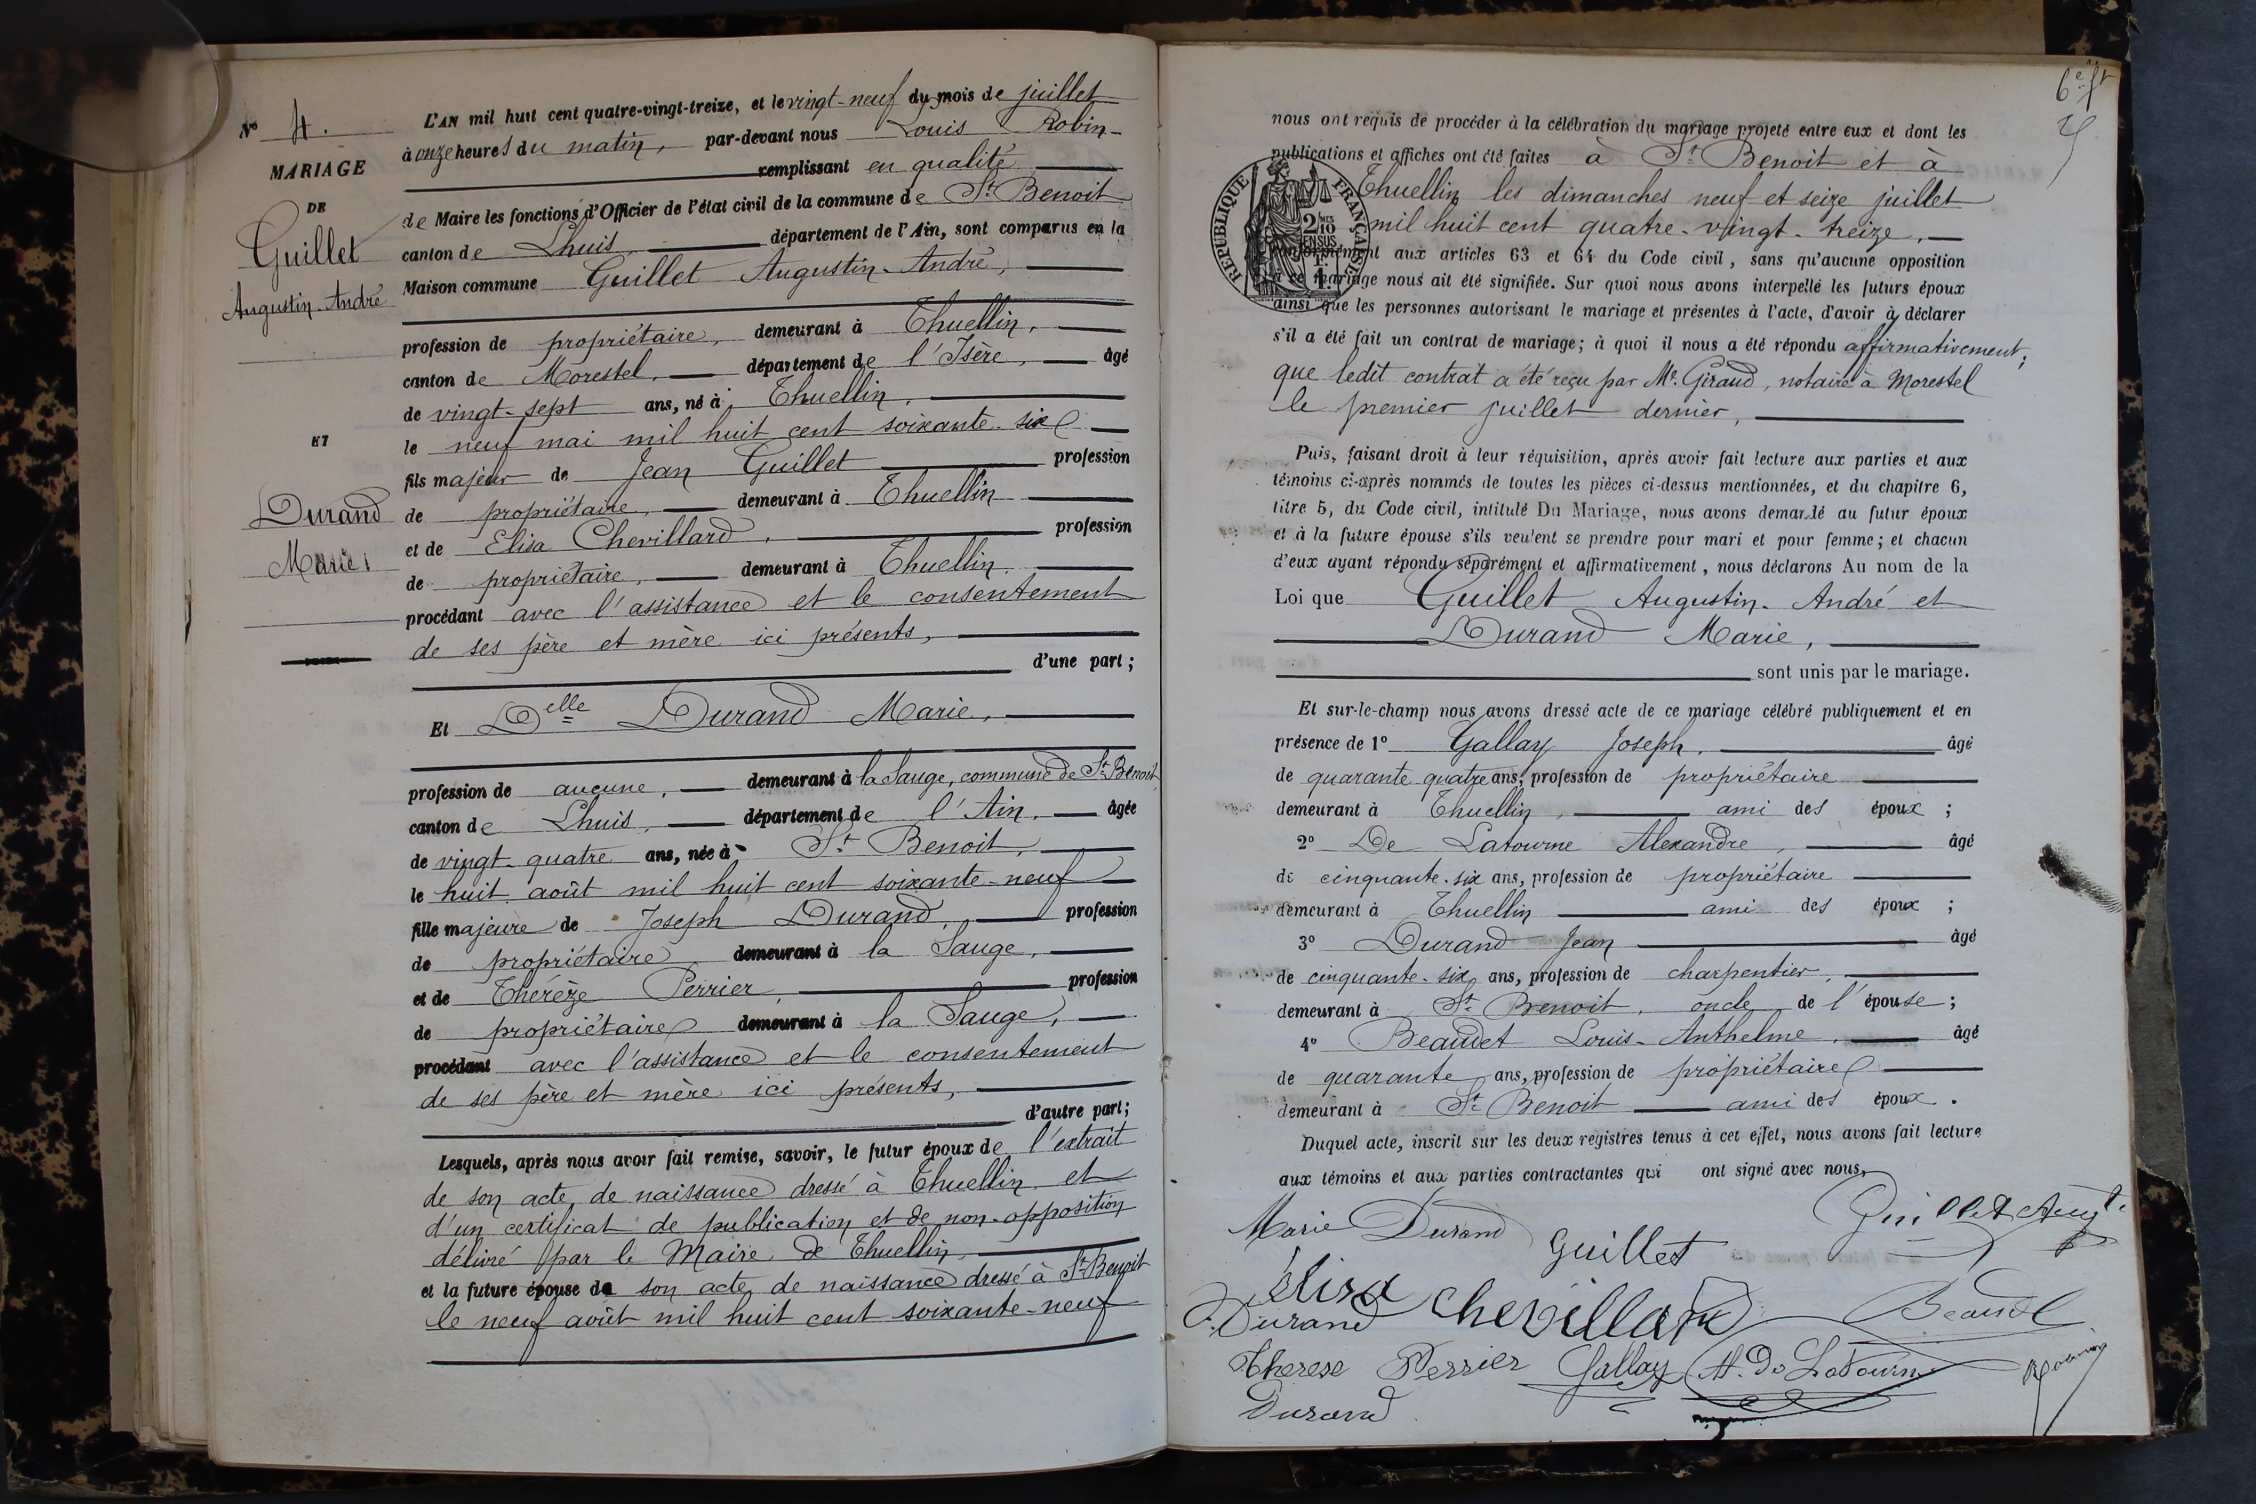 N° 4.
MARIAGE
DE
Guillet
Augustin-André
ET
Durand
Marie
L'AN mil huit cent quatre-vingt-treize, et le vingt-neuf du mois de juillet
à onze heures du matin, par-devant nous Louis Robin
remplissant en qualité
de Maire les fonctions d'Officier de l'état civil de la commune de St Benoit
canton de Lhuis, département de l'Ain, sont comparus en la
Maison commune Guillet Augustin-André,
profession de propriétaire, demeurant à Thuellin,
canton de Morestel, département de l'Isère, âgé
de vingt-sept ans, né à Thuellin,
le neuf mai mil huit cent soixante-six
fils majeur de Jean Guillet profession
de propriétaire, demeurant à Thuellin
et de Elisa Chevillard, profession
de propriétaire, demeurant à Thuellin,
procédant avec l'assistance et le consentement
de ses père et mère ici présents,
d'une part;
Et Delle Durand Marie,
profession de aucune, demeurant à la Sauge, commune de St Benoit
canton de Lhuis, département de l'Ain, âgée
de vingt-quatre ans, née à St Benoit,
le huit août mil huit cent soixante-neuf
fille majeure de Joseph Durand, profession
de propriétaire demeurant à la Sauge,
et de Thérèze Perrier, profession
de propriétaire demeurant à la Sauge,
procédant avec l'assistance et le consentement
de ses père et mère ici présents,
d'autre part;
Lesquels, après nous avoir fait remise, savoir, le futur époux de l'extrait
de son acte de naissance dressé à Thuellin et
d'un certificat de publication et de non-opposition
délivré par le Maire de Thuellin
et la future épouse de son acte de naissance dressé à St Benoit
le neuf août mil huit cent soixante-neuf
6e ft
nous ont requis de procéder à la célébration du mariage projeté entre eux et dont les
publications et affiches ont été faites à St Benoit et à
Thuellin les dimanches neuf et seize juillet
mil huit cent quatre-vingt-treize,
RÉPUBLIQUE FRANÇAISE
2/10 EN SUS
conformément aux articles 63 et 64 du Code civil, sans qu'aucune opposition
à ce mariage nous ait été signifiée. Sur quoi nous avons interpellé les futurs époux
ainsi que les personnes autorisant le mariage et présentes à l'acte, d'avoir à déclarer
s'il a été fait un contrat de mariage; à quoi il nous a été répondu affirmativement;
que ledit contrat a été reçu par Me Giraud, notaire à Morestel
le premier juillet dernier,
Puis, faisant droit à leur réquisition, après avoir fait lecture aux parties et aux
témoins ci-après nommés de toutes les pièces ci-dessus mentionnées, et du chapitre 6,
titre 5, du Code civil, intitulé Du Mariage, nous avons demandé au futur époux
et à la future épouse s'ils veulent se prendre pour mari et pour femme; et chacun
d'eux ayant répondu séparément et affirmativement, nous déclarons Au nom de la
Loi que Guillet Augustin-André et
Durand Marie,
sont unis par le mariage.
Et sur-le-champ nous avons dressé acte de ce mariage célébré publiquement et en
présence de 1° Gallay Joseph, âgé
de quarante-quatre ans, profession de propriétaire
demeurant à Thuellin, ami des époux;
2° De Latourne Alexandre, âgé
de cinquante-six ans, profession de propriétaire
demeurant à Thuellin ami des époux;
3° Durand Jean âgé
de cinquante-six ans, profession de charpentier,
demeurant à St Benoit, oncle de l'épouse;
4° Beaudet Louis-Anthelme, âgé
de quarante ans, profession de propriétaire
demeurant à St Benoit ami des époux.
Duquel acte, inscrit sur les deux registres tenus à cet effet, nous avons fait lecture
aux témoins et aux parties contractantes qui ont signé avec nous,
Marie Durand Guillet Guillet Aug
Elisa Chevillard
J. Durand Beaudet
Therese Perrier Gallay A. De Latourne Robin
Durand